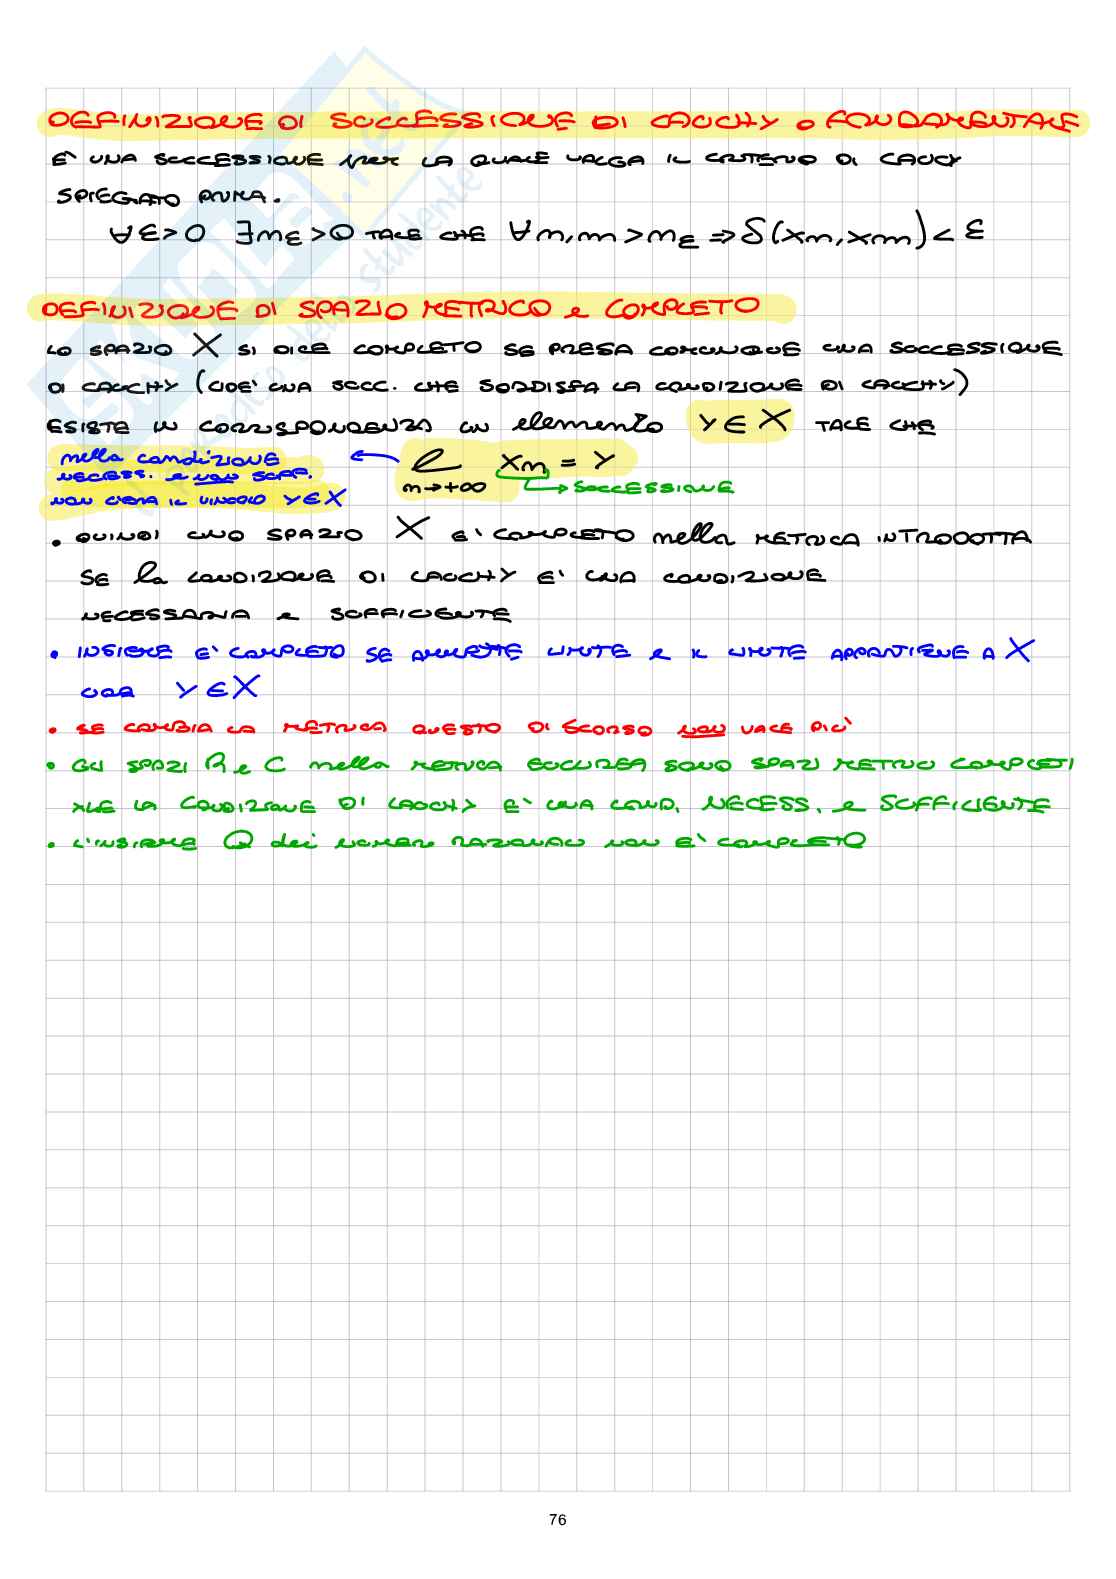 DEFINIZIONE DI SUCCESSIONE DI CAUCHY o FONDAMENTALE
E' UNA SUCCESSIONE per LA QUALE VALGA IL CRITERIO DI CAUCY
SPIEGATO PRIMA.
∀ε>0 ∃nε>0 TALE CHE ∀n,m>nε ⇒ δ(xn,xm)<ε
DEFINIZIONE DI SPAZIO METRICO e COMPLETO
LO SPAZIO X SI DICE COMPLETO SE PRESA COMUNQUE UNA SUCCESSIONE
DI CAUCHY (CIOE' UNA SUCC. CHE SODDISFA LA CONDIZIONE DI CAUCHY)
ESISTE IN CORRISPONDENZA UN elemento Y∈X TALE CHE
nella condizione
NECESS. e NON SUFF.
NON C'ERA IL VINCOLO Y∈X
ℓ xn = Y
n→+∞
SUCCESSIONE
• QUINDI UNO SPAZIO X E' COMPLETO nella METRICA INTRODOTTA
SE la CONDIZIONE DI CAUCHY E' UNA CONDIZIONE
NECESSARIA e SUFFICIENTE
• INSIEME E' COMPLETO SE AMMETTE LIMITE e IL LIMITE APPARTIENE A X
Y∈X
• SE CAMBIA LA METRICA QUESTO DISCORSO NON VALE PIU'
• GLI SPAZI R e C nella METRICA EUCLIDEA SONO SPAZI METRICI COMPLETI
LA CONDIZIONE DI CAUCHY E' UNA COND. NECESS. e SUFFICIENTE
• L'INSIEME Q dei NUMERI RAZIONALI NON E' COMPLETO
76